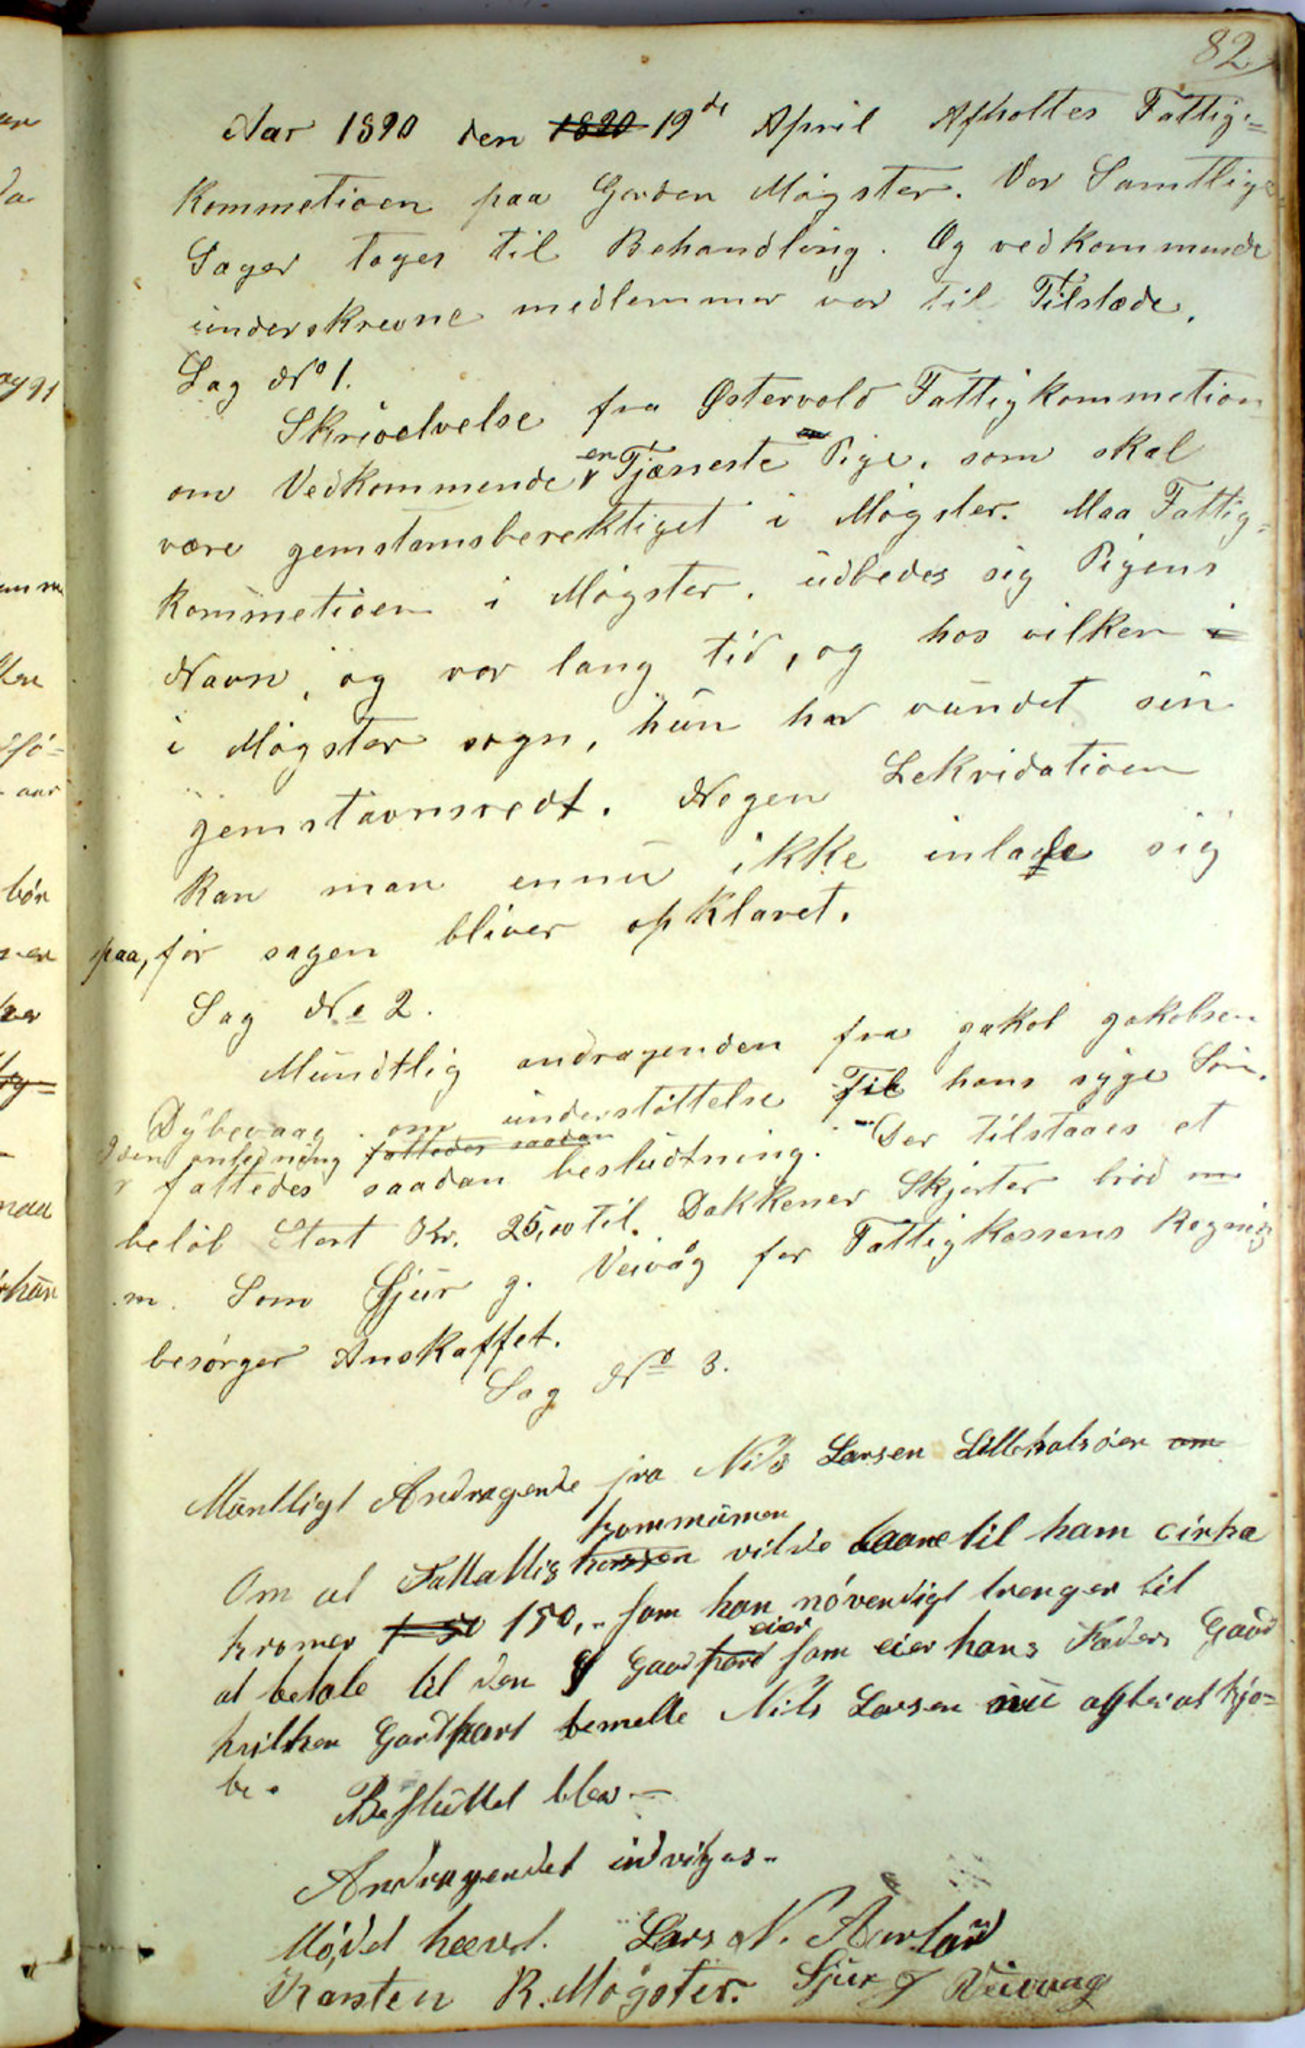 82
Aar 1890 den 1890 19de April Afholtes Fattig-
kommetioen paa Gorden Møgster. Vor Samtlige
Sager toges til Behandling. Og vedkommende
underskrevne medlemmer var til Tilstæde.
Sag No 1.
Skrivelvelse fra Østervold Fattigkommetion
om Vedkommende en Tjæneste Pige. som skal
være gemstamsberektiget i Møgster. Maa Fattig-
kommetioen i Møgster. udbedes sig Pigens
Navn, og vor lang tid, og hos vilken i
i Møgster sogn, hun har vundet sin
gemstavnsredt. Nogen Lekvidatioen
kan man ennu ikke inlade sig
paa, før sagen bliver opklaret.
Sag No 2.
Mundtlig andragenden fra jakob jakobsen
Dybevaag. om understøttelse Til hans syge Søn.
I den anledning fattedes saadan
fattedes saadan besludtning. Der tilstaaes et
beløb Stort Kr. 25,00 til. Dakkener Skjorter brød m
m. Som Sjur g. Veivåg for Fattigkassens Regnig
besørger Anskaffet.
Sag No 3.
Muntligt Andragende fra Nils Larsen Lillekalsøen om
kommunen
Om at Fattattigkassen vilde laane til ham cirka
kroner 150 150,- som han nøvendigt trenger til
eier
at betale til den Gaardpart som eier hans Faders Gaard
hvilken Gardpart bemelte Nils Larsen nu agter at kjø-
be.
Besluttet blev —
Andragendet indvilges.
Mødet hævet. Lars N. Aurland
Karsten R. Møgster. Sjur J Veivaag